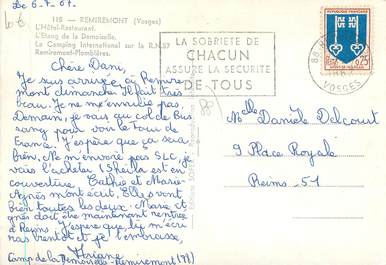 Le 6.7.67.
115 - REMIREMONT (Vosges)
L'Hôtel-Restaurant.
L'Etang de la Demoiselle.
Le Camping International sur la R.N.57
Remiremont-Plombières.
Chère Dani,
Je suis arrivée à Remire-
mont dimanche. Il fait très
beau. Je ne m'ennuie pas.
Demain, je vais au col de Bus-
sang pour voir le Tour de
France. J'espère que ça sera
bien. Ne m'envoie pas SLC, je
vais l'acheter (Sheila est en
couverture. Cathie et Marie-
Agnès m'ont écrit. Elles vont
bien toutes les deux. Marie
gnès doit être maintenant rentrée
à Reims. J'espère que tu m'écri-
ras bientôt et je t'embrasse,
Ariane
Camp de la Demoiselle-Remiremont
LA SOBRIETE DE
CHACUN
ASSURE LA SECURITE
DE TOUS
88
VOSGES
REPUBLIQUE FRANÇAISE
0,25
Melle Danièle Delcourt
9 Place Royale
Reims - 51